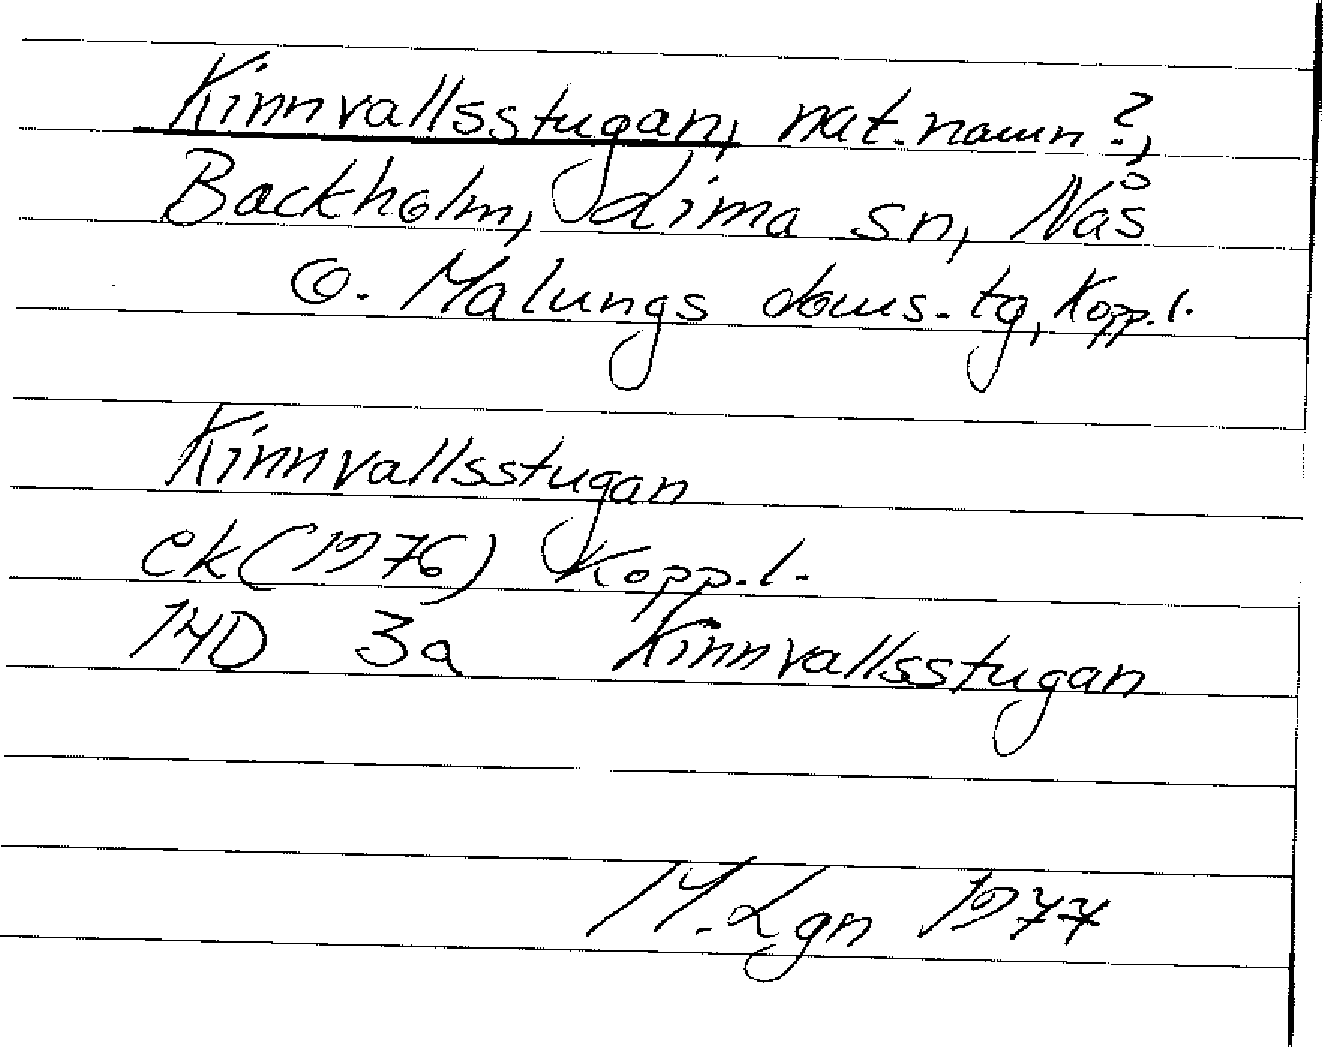 Kinnvallsstugan, nat.namn?,
Backholm, Lima sn, Nås
o. Malungs doms.tg, Kopp.l.
Kinnvallsstugan
ek(1976) Kopp.l.
14D 3a Kinnvallsstugan
M.Lgn 1977